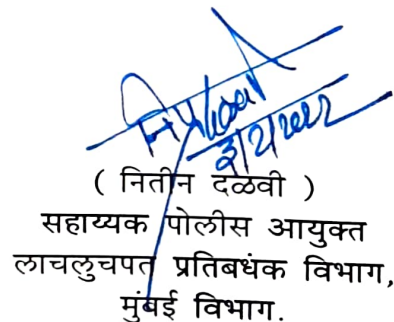 ( नितीन दळवी )
सहाय्यक पोलीस आयुक्त
लाचलुचपत प्रतिबधंक विभाग,
मुंबई विभाग.